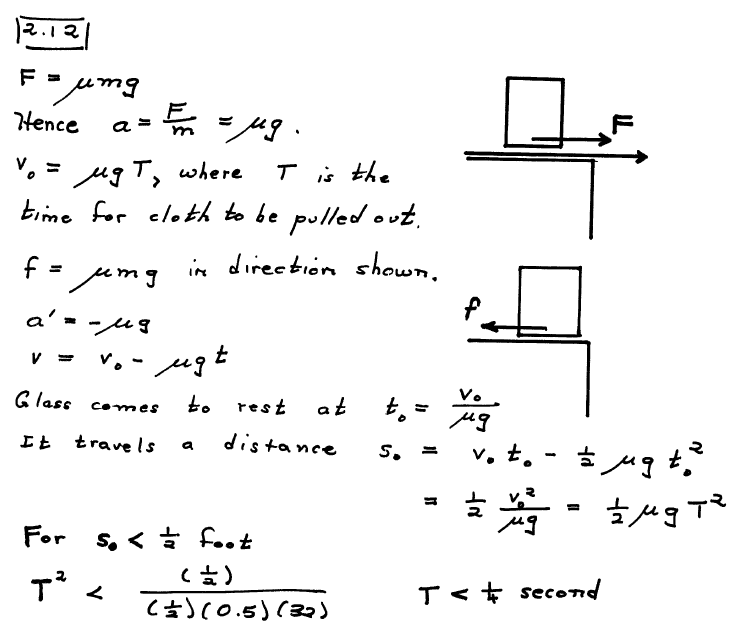 2.12
F = μmg
Hence a = F/m = μg.
v₀ = μgT, where T is the
time for cloth to be pulled out.
F
f = μmg in direction shown.
a' = -μg
v = v₀ - μgt
f
Glass comes to rest at t₀ = v₀/μg
It travels a distance s₀ = v₀t₀ - ½ μg t₀²
= ½ v₀²/μg = ½ μg T²
For s₀ < ½ foot
T² < (½)/(½)(0.5)(32) T < ¼ second